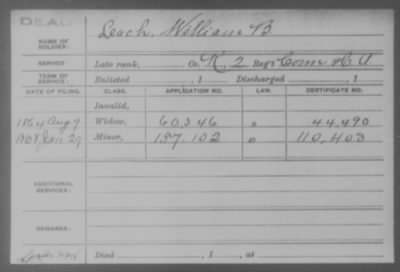 DEAD
NAME OF SOLDIER: Leach, William B
SERVICE: Late rank, Co. K, 2 Reg't Conn H A
TERM OF SERVICE: Enlisted , 1 Discharged , 1
DATE OF FILING. CLASS. APPLICATION NO. LAW. CERTIFICATE NO.
Invalid,
1864 Aug 9 Widow, 60,346 44,490
Jan 27 Minor, 157,102 110,403
ADDITIONAL SERVICES:
REMARKS:
Died , 1 , at